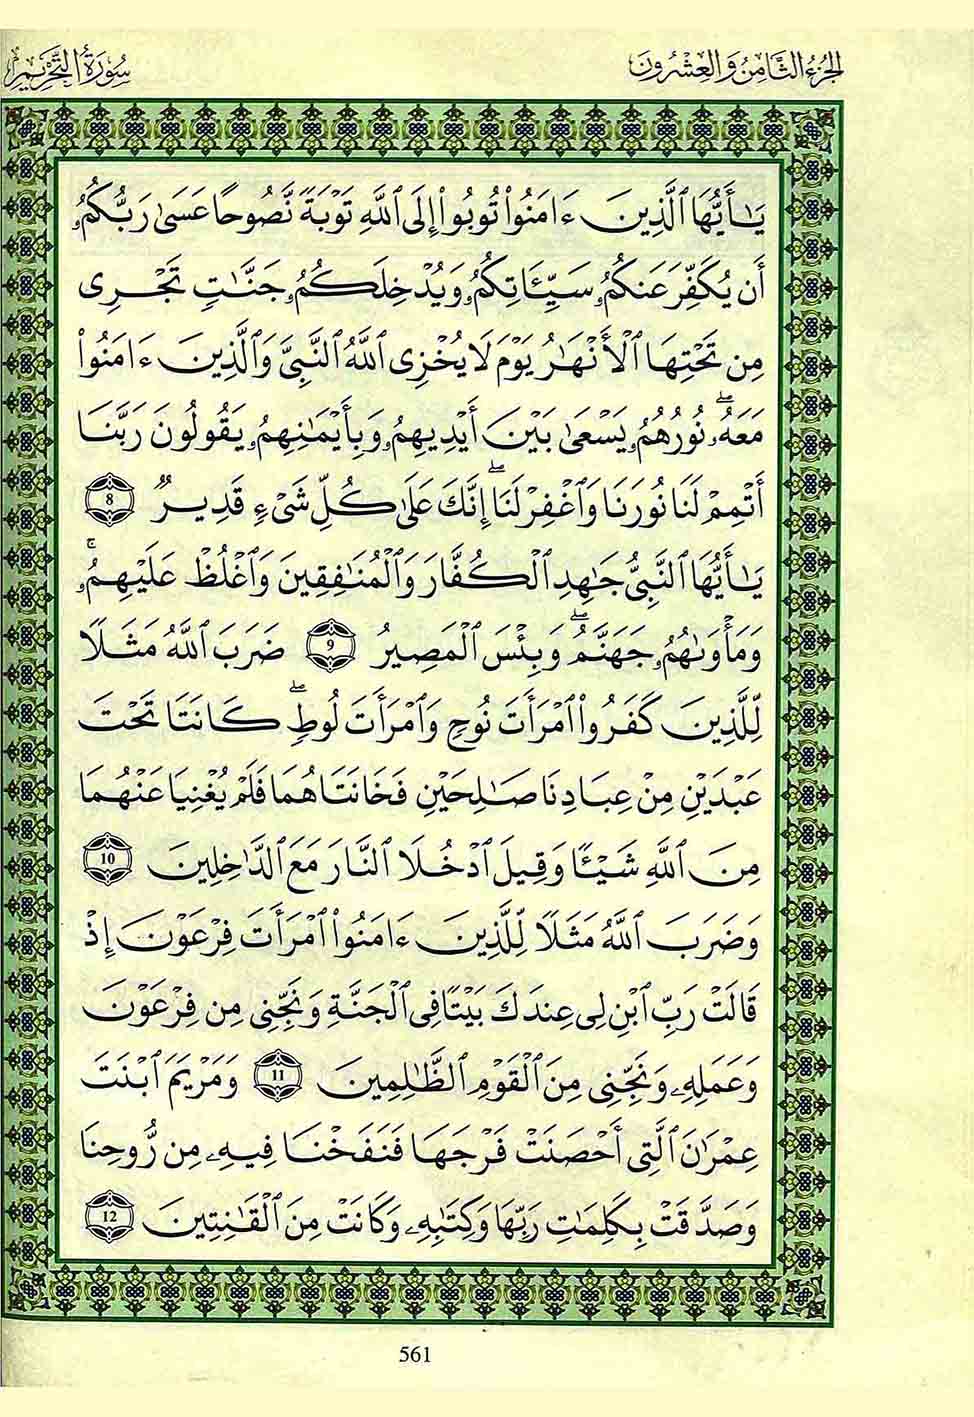 الجزء الثامن والعشرون
سورة التحريم
يَـٰٓأَيُّهَا ٱلَّذِينَ ءَامَنُوا۟ تُوبُوا۟ إِلَى ٱللَّهِ تَوْبَةً نَّصُوحًا عَسَىٰ رَبُّكُمُۥ
أَن يُكَفِّرَ عَنكُمُۥ سَيِّـَٔاتِكُمُۥ وَيُدْخِلَكُمُۥ جَنَّـٰتٍ تَجْرِى
مِن تَحْتِهَا ٱلْأَنْهَـٰرُ يَوْمَ لَا يُخْزِى ٱللَّهُ ٱلنَّبِىَّ وَٱلَّذِينَ ءَامَنُوا۟
مَعَهُۥۖ نُورُهُمُۥ يَسْعَىٰ بَيْنَ أَيْدِيهِمُۥ وَبِأَيْمَـٰنِهِمُۥ يَقُولُونَ رَبَّنَا
أَتْمِمْ لَنَا نُورَنَا وَٱغْفِرْ لَنَاۖ إِنَّكَ عَلَىٰ كُلِّ شَىْءٍ قَدِيرٌ 8
يَـٰٓأَيُّهَا ٱلنَّبِىُّ جَـٰهِدِ ٱلْكُفَّارَ وَٱلْمُنَـٰفِقِينَ وَٱغْلُظْ عَلَيْهِمُۥۚ
وَمَأْوَىٰهُمُۥ جَهَنَّمُۖ وَبِئْسَ ٱلْمَصِيرُ 9 ضَرَبَ ٱللَّهُ مَثَلًا
لِّلَّذِينَ كَفَرُوا۟ ٱمْرَأَتَ نُوحٍ وَٱمْرَأَتَ لُوطٍۖ كَانَتَا تَحْتَ
عَبْدَيْنِ مِنْ عِبَادِنَا صَـٰلِحَيْنِ فَخَانَتَاهُمَا فَلَمْ يُغْنِيَا عَنْهُمَا
مِنَ ٱللَّهِ شَيْـًٔا وَقِيلَ ٱدْخُلَا ٱلنَّارَ مَعَ ٱلدَّٰخِلِينَ 10
وَضَرَبَ ٱللَّهُ مَثَلًا لِّلَّذِينَ ءَامَنُوا۟ ٱمْرَأَتَ فِرْعَوْنَ إِذْ
قَالَتْ رَبِّ ٱبْنِ لِى عِندَكَ بَيْتًا فِى ٱلْجَنَّةِ وَنَجِّنِى مِن فِرْعَوْنَ
وَعَمَلِهِۦ وَنَجِّنِى مِنَ ٱلْقَوْمِ ٱلظَّـٰلِمِينَ 11 وَمَرْيَمَ ٱبْنَتَ
عِمْرَٰنَ ٱلَّتِى أَحْصَنَتْ فَرْجَهَا فَنَفَخْنَا فِيهِۦ مِن رُّوحِنَا
وَصَدَّقَتْ بِكَلِمَـٰتِ رَبِّهَا وَكِتَـٰبِهِۦ وَكَانَتْ مِنَ ٱلْقَـٰنِتِينَ 12
561